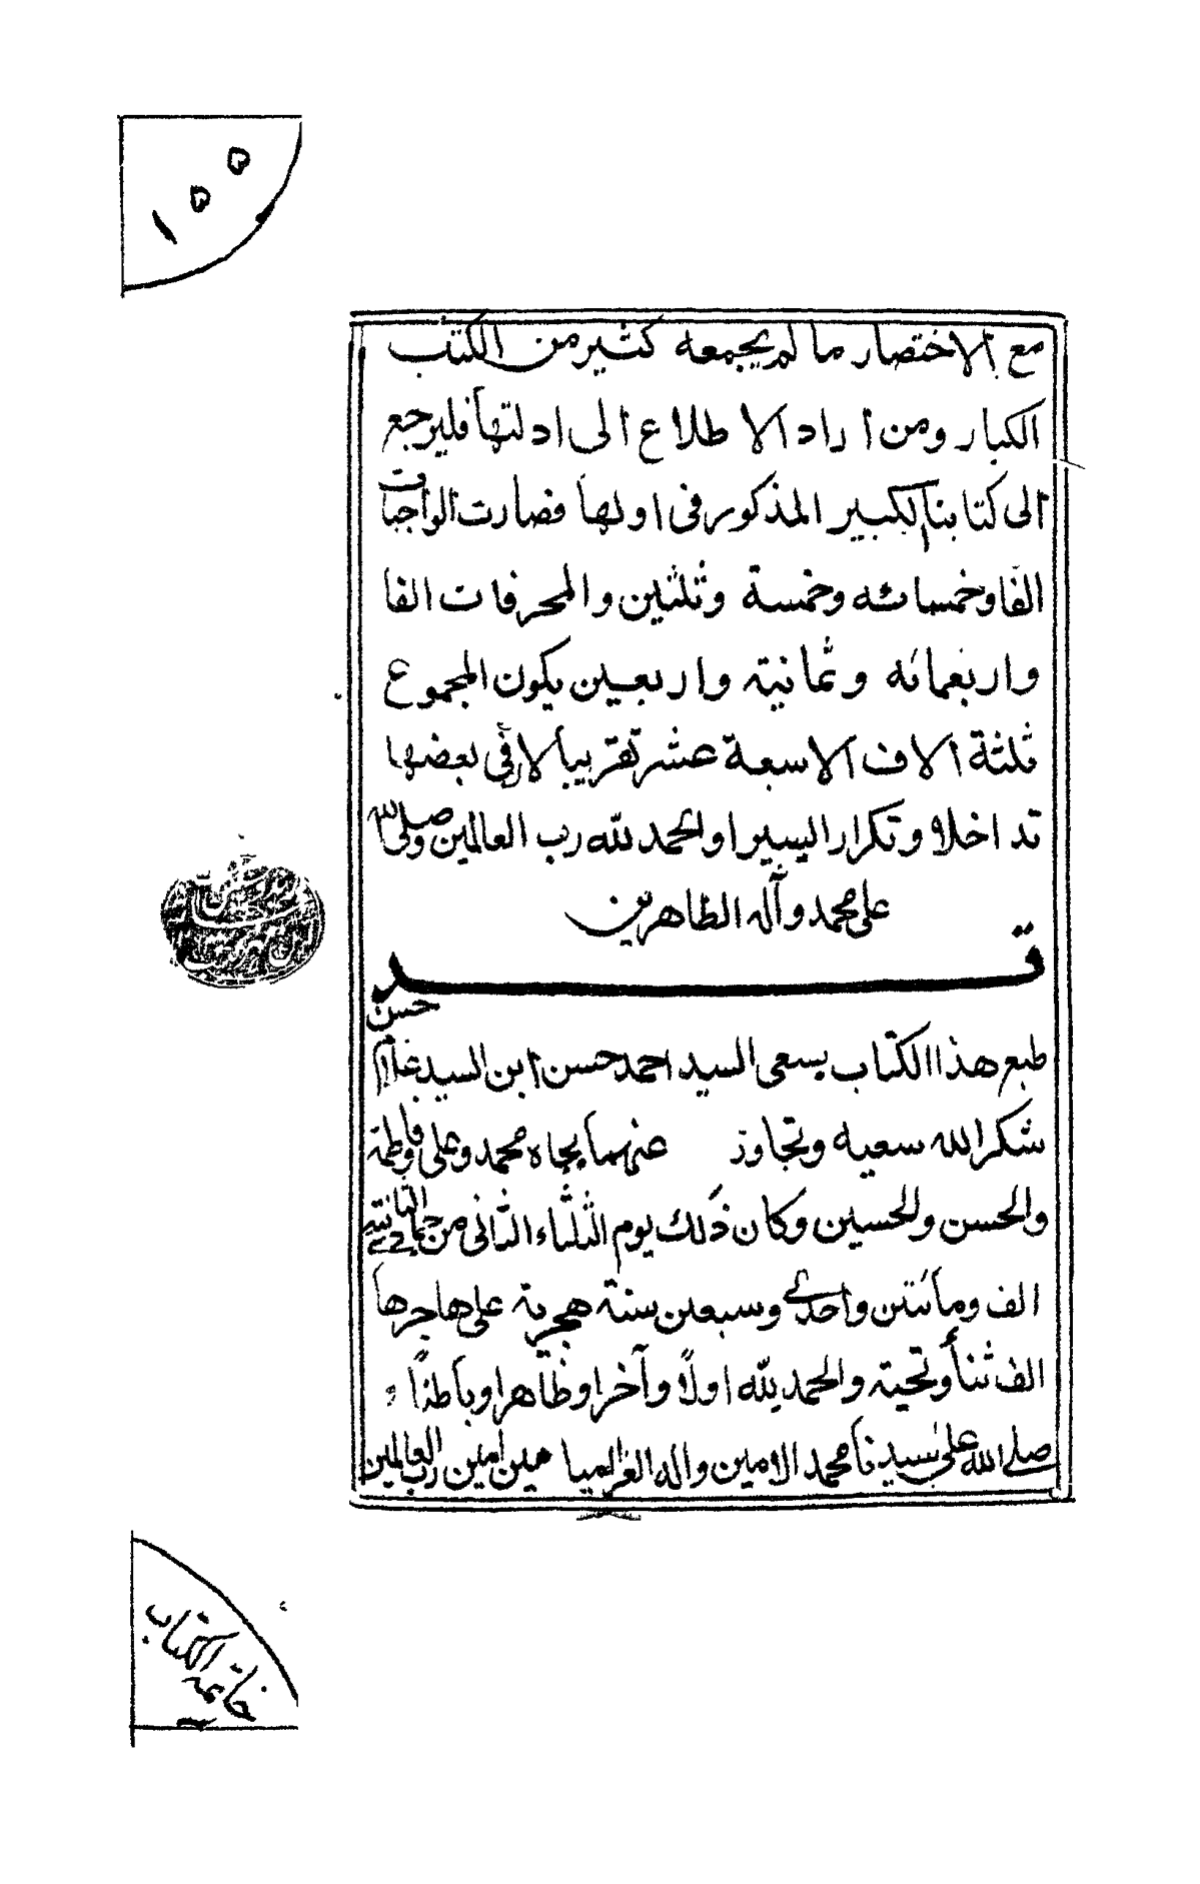 ١٥٥
مع الاختصار ما لم يجمعه كثير من الكتب
الكبار ومن اراد الاطلاع الى ادلتها فليرجع
الى كتابنا الكبير المذكور فى اولها فصارت الواجبات
الفا وخمسمائه وخمسة وثلثين والمحرفات الفا
واربعمائه وثمانية واربعين يكون المجموع
ثلثة الاف الا سبعة عشر تقريبا لان فى بعضها
تداخلا وتكرار اليسيرا والحمد لله رب العالمين وصلى الله
على محمد وآله الطاهرين
قد
طبع هذا الكتاب بسعى السيد احمد حسن ابن السيد غلام حسن
شكر الله سعيه وتجاوز عنهما بجاه محمد وعلى وفاطمة
والحسن والحسين وكان ذلك يوم الثلثاء الثانى من جمادى الثانية
الف ومائتين واحدى وسبعين سنة هجرية على هاجرها
الف ثناأ وتحية والحمد لله اولًا وآخرا وظاهرا وباطنًا و
صلى الله على سيدنا محمد الامين واله الغر الميامين امين رب العالمين
خاتمة الكتاب